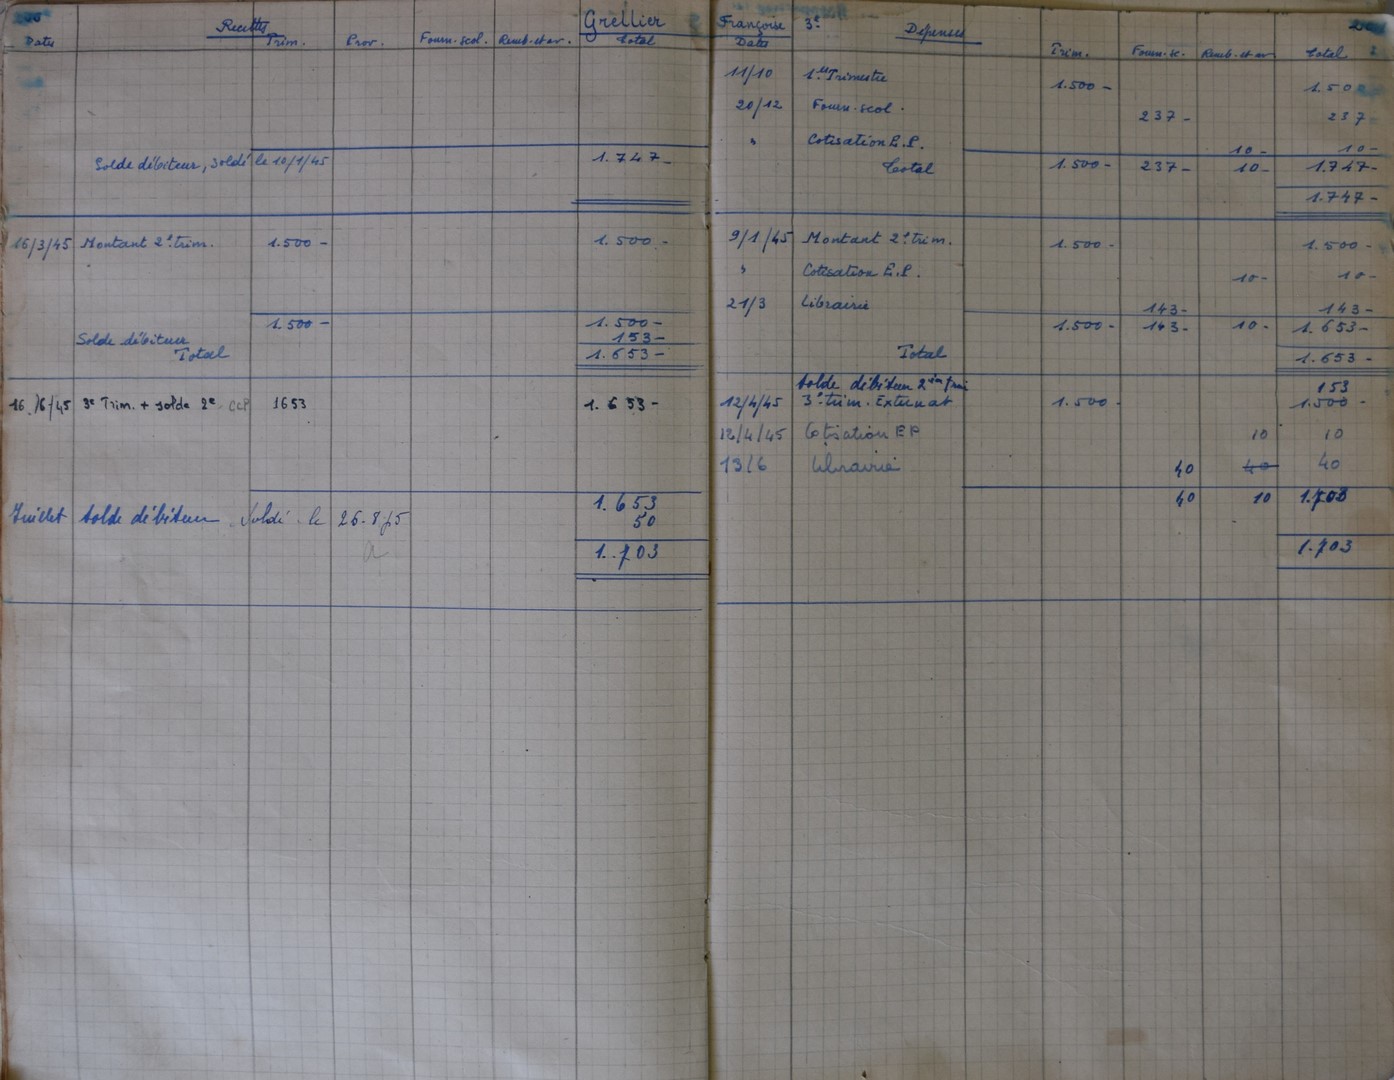 Recettes Grellier
Dates Trim. Prov. Fourn. scol. Remb. et av. Total
Solde débiteur, soldé le 10/1/45 1.747-
16/3/45 Montant 2e trim. 1.500- 1.500-
1.500- 1.500-
Solde débiteur 153-
Total 1.653-
16/6/45 3e Trim. + solde 2e CCP 1653 1.653-
1.653
Juillet Solde débiteur Soldé le 50
1.703
Françoise 3e Dépenses
Dates Trim. Fourn. sc. Remb. et av Total
11/10 1er Trimestre 1.500- 1.500
20/12 Fourn. scol. 237- 237
" Cotisation E.P. 10- 10-
Total 1.500- 237- 10- 1.747-
1.747-
9/1/45 Montant 2e trim. 1.500- 1.500-
" Cotisation E.P. 10- 10-
21/3 Librairie 143- 143-
1.500- 143- 10- 1.653-
Total 1.653-
Solde débiteur 153
12/4/45 3e trim. Externat 1.500- 1.500-
12/4/45 Cotisation EP 10 10
13/6 Librairie 40 40 40
40 10 1.703
1.703